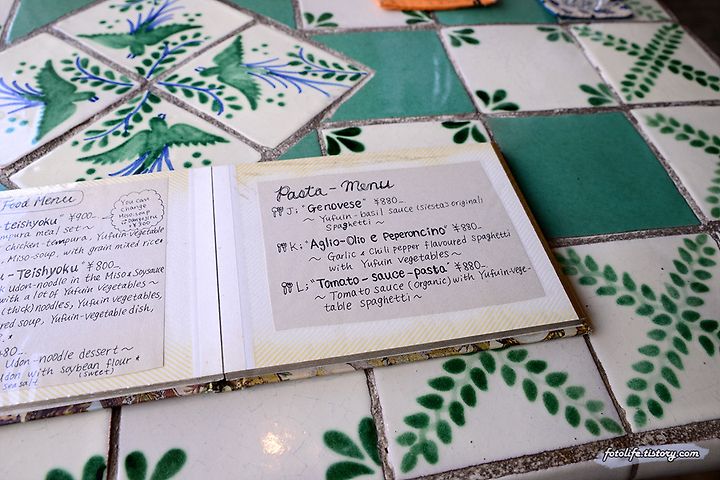 Food Menu
-teishyoku" ¥900_
mpura meal set~
Chicken-tempura, Yufuin-vegetable
, Miso-soup, with grain mixed rice
You can
change
Miso-soup
¥300
u-Teishyoku" ¥800_
k Udon-noodle in the Miso & Soysauce
with a lot of Yufuin Vegetables~
(thick) noodles, Yufuin vegetables,
red soup, Yufuin-vegetable dish,
e.*
480_
Udon-noodle dessert~
Udon with soybean flour &
sea salt (sweet)
Pasta-Menu
J; "Genovese" ¥880_
~ Yufuin-basil sauce (siesta's original)
Spaghetti ~
K; "Aglio-Olio e Peperoncino" ¥880_
~ Garlic & Chili pepper flavoured Spaghetti
with Yufuin vegetables ~
L; "Tomato-sauce-pasta" ¥880_
~ Tomato sauce (organic) with Yufuin-vege-
table spaghetti ~
fotolife.tistory.com